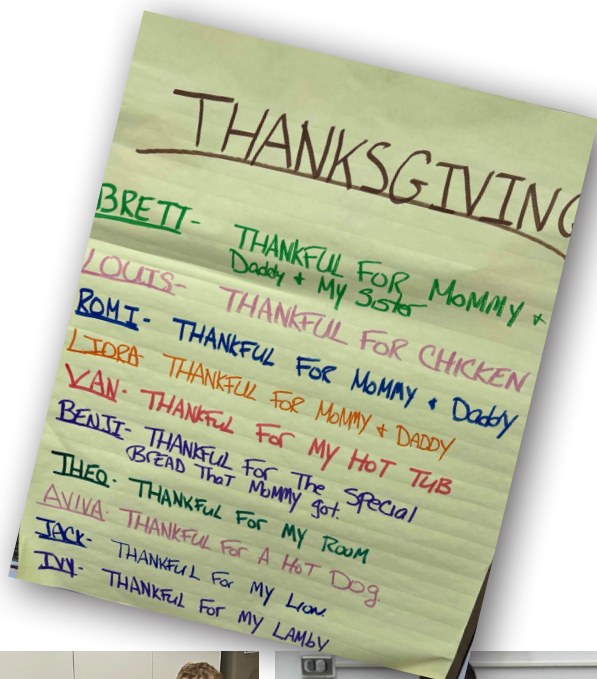 THANKSGIVING
BRETT- THANKFUL FOR MOMMY +
Daddy + My Sister
LOUIS- THANKFUL FOR CHICKEN
ROMI- THANKFUL FOR MOMMY + Daddy
LIORA- THANKFUL FOR MOMMY + DADDY
VAN- THANKFUL For My HOT TUB
BENJI- THANKFUL For The Special
BREAD That Mommy got.
THEO- THANKFUL For My Room
AVIVA- THANKFUL For A HOT Dog.
JACK- THANKFUL For My Lion.
IVY- THANKFUL For My LAMBY